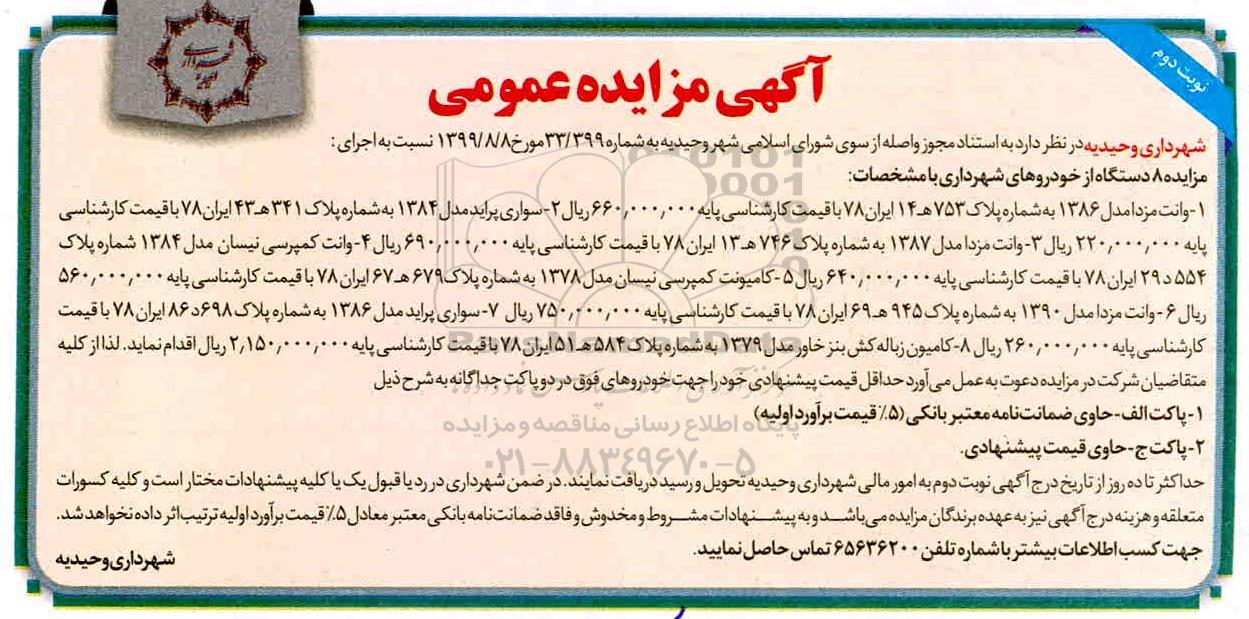 نوبت دوم
آگهی مزایده عمومی
شهرداری وحیدیه در نظر دارد به استناد مجوز واصله از سوی شورای اسلامی شهر وحیدیه به شماره ۳۳/۳۹۹ مورخ ۱۳۹۹/۸/۸ نسبت به اجرای :
مزایده ۸ دستگاه از خودروهای شهرداری با مشخصات:
۱-وانت مزدا مدل ۱۳۸۶ به شماره پلاک ۷۵۳هـ۱۴ ایران۷۸ با قیمت کارشناسی پایه ۶۶۰,۰۰۰,۰۰۰ ریال ۲-سواری پراید مدل ۱۳۸۴ به شماره پلاک ۳۴۱ هـ۴۳ ایران ۷۸ با قیمت کارشناسی
پایه ۲۲۰,۰۰۰,۰۰۰ ریال ۳-وانت مزدا مدل ۱۳۸۷ به شماره پلاک ۷۴۶ هـ۱۳ ایران ۷۸ با قیمت کارشناسی پایه ۶۹۰,۰۰۰,۰۰۰ ریال ۴-وانت کمپرسی نیسان مدل ۱۳۸۴ شماره پلاک
۵۵۴ د ۲۹ ایران ۷۸ با قیمت کارشناسی پایه ۶۴۰,۰۰۰,۰۰۰ ریال ۵-کامیونت کمپرسی نیسان مدل ۱۳۷۸ به شماره پلاک ۶۷۹ هـ۶۷ ایران ۷۸ با قیمت کارشناسی پایه ۵۶۰,۰۰۰,۰۰۰
ریال ۶-وانت مزدا مدل ۱۳۹۰ به شماره پلاک ۹۴۵ هـ۶۹ ایران ۷۸ با قیمت کارشناسی پایه ۷۵۰,۰۰۰,۰۰۰ ریال ۷-سواری پراید مدل ۱۳۸۶ به شماره پلاک ۶۹۸د۸۶ ایران ۷۸ با قیمت
کارشناسی پایه ۲۶۰,۰۰۰,۰۰۰ ریال ۸-کامیون زباله کش بنز خاور مدل ۱۳۷۹ به شماره پلاک ۵۸۴ هـ۵۱ ایران ۷۸ با قیمت کارشناسی پایه ۲,۱۵۰,۰۰۰,۰۰۰ ریال اقدام نماید. لذا از کلیه
متقاضیان شرکت در مزایده دعوت به عمل می‌آورد حداقل قیمت پیشنهادی خود را جهت خودروهای فوق در دو پاکت جداگانه به شرح ذیل
۱-پاکت الف-حاوی ضمانت‌نامه معتبر بانکی (۵٪ قیمت برآورد اولیه)
۲-پاکت ج-حاوی قیمت پیشنهادی.
حداکثر تا ده روز از تاریخ درج آگهی نوبت دوم به امور مالی شهرداری وحیدیه تحویل و رسید دریافت نمایند. در ضمن شهرداری در رد یا قبول یک یا کلیه پیشنهادات مختار است و کلیه کسورات
متعلقه و هزینه درج آگهی نیز به عهده برندگان مزایده می‌باشد و به پیشنهادات مشروط و مخدوش و فاقد ضمانت‌نامه بانکی معتبر معادل ۵٪ قیمت برآورد اولیه ترتیب اثر داده نخواهد شد.
جهت کسب اطلاعات بیشتر با شماره تلفن ۶۵۶۳۶۲۰۰ تماس حاصل نمایید.
شهرداری وحیدیه
ParsNamadData
پایگاه اطلاع رسانی مناقصه و مزایده
۰۲۱-۸۸۳۴۹۶۷۰-۵